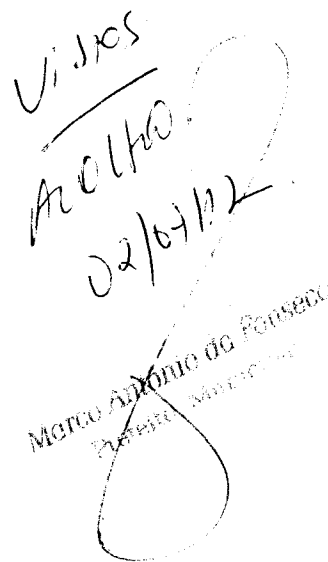 Vistos
Acolho.
02/07/12
Marco Antonio da Fonseca
Prefeito Municipal